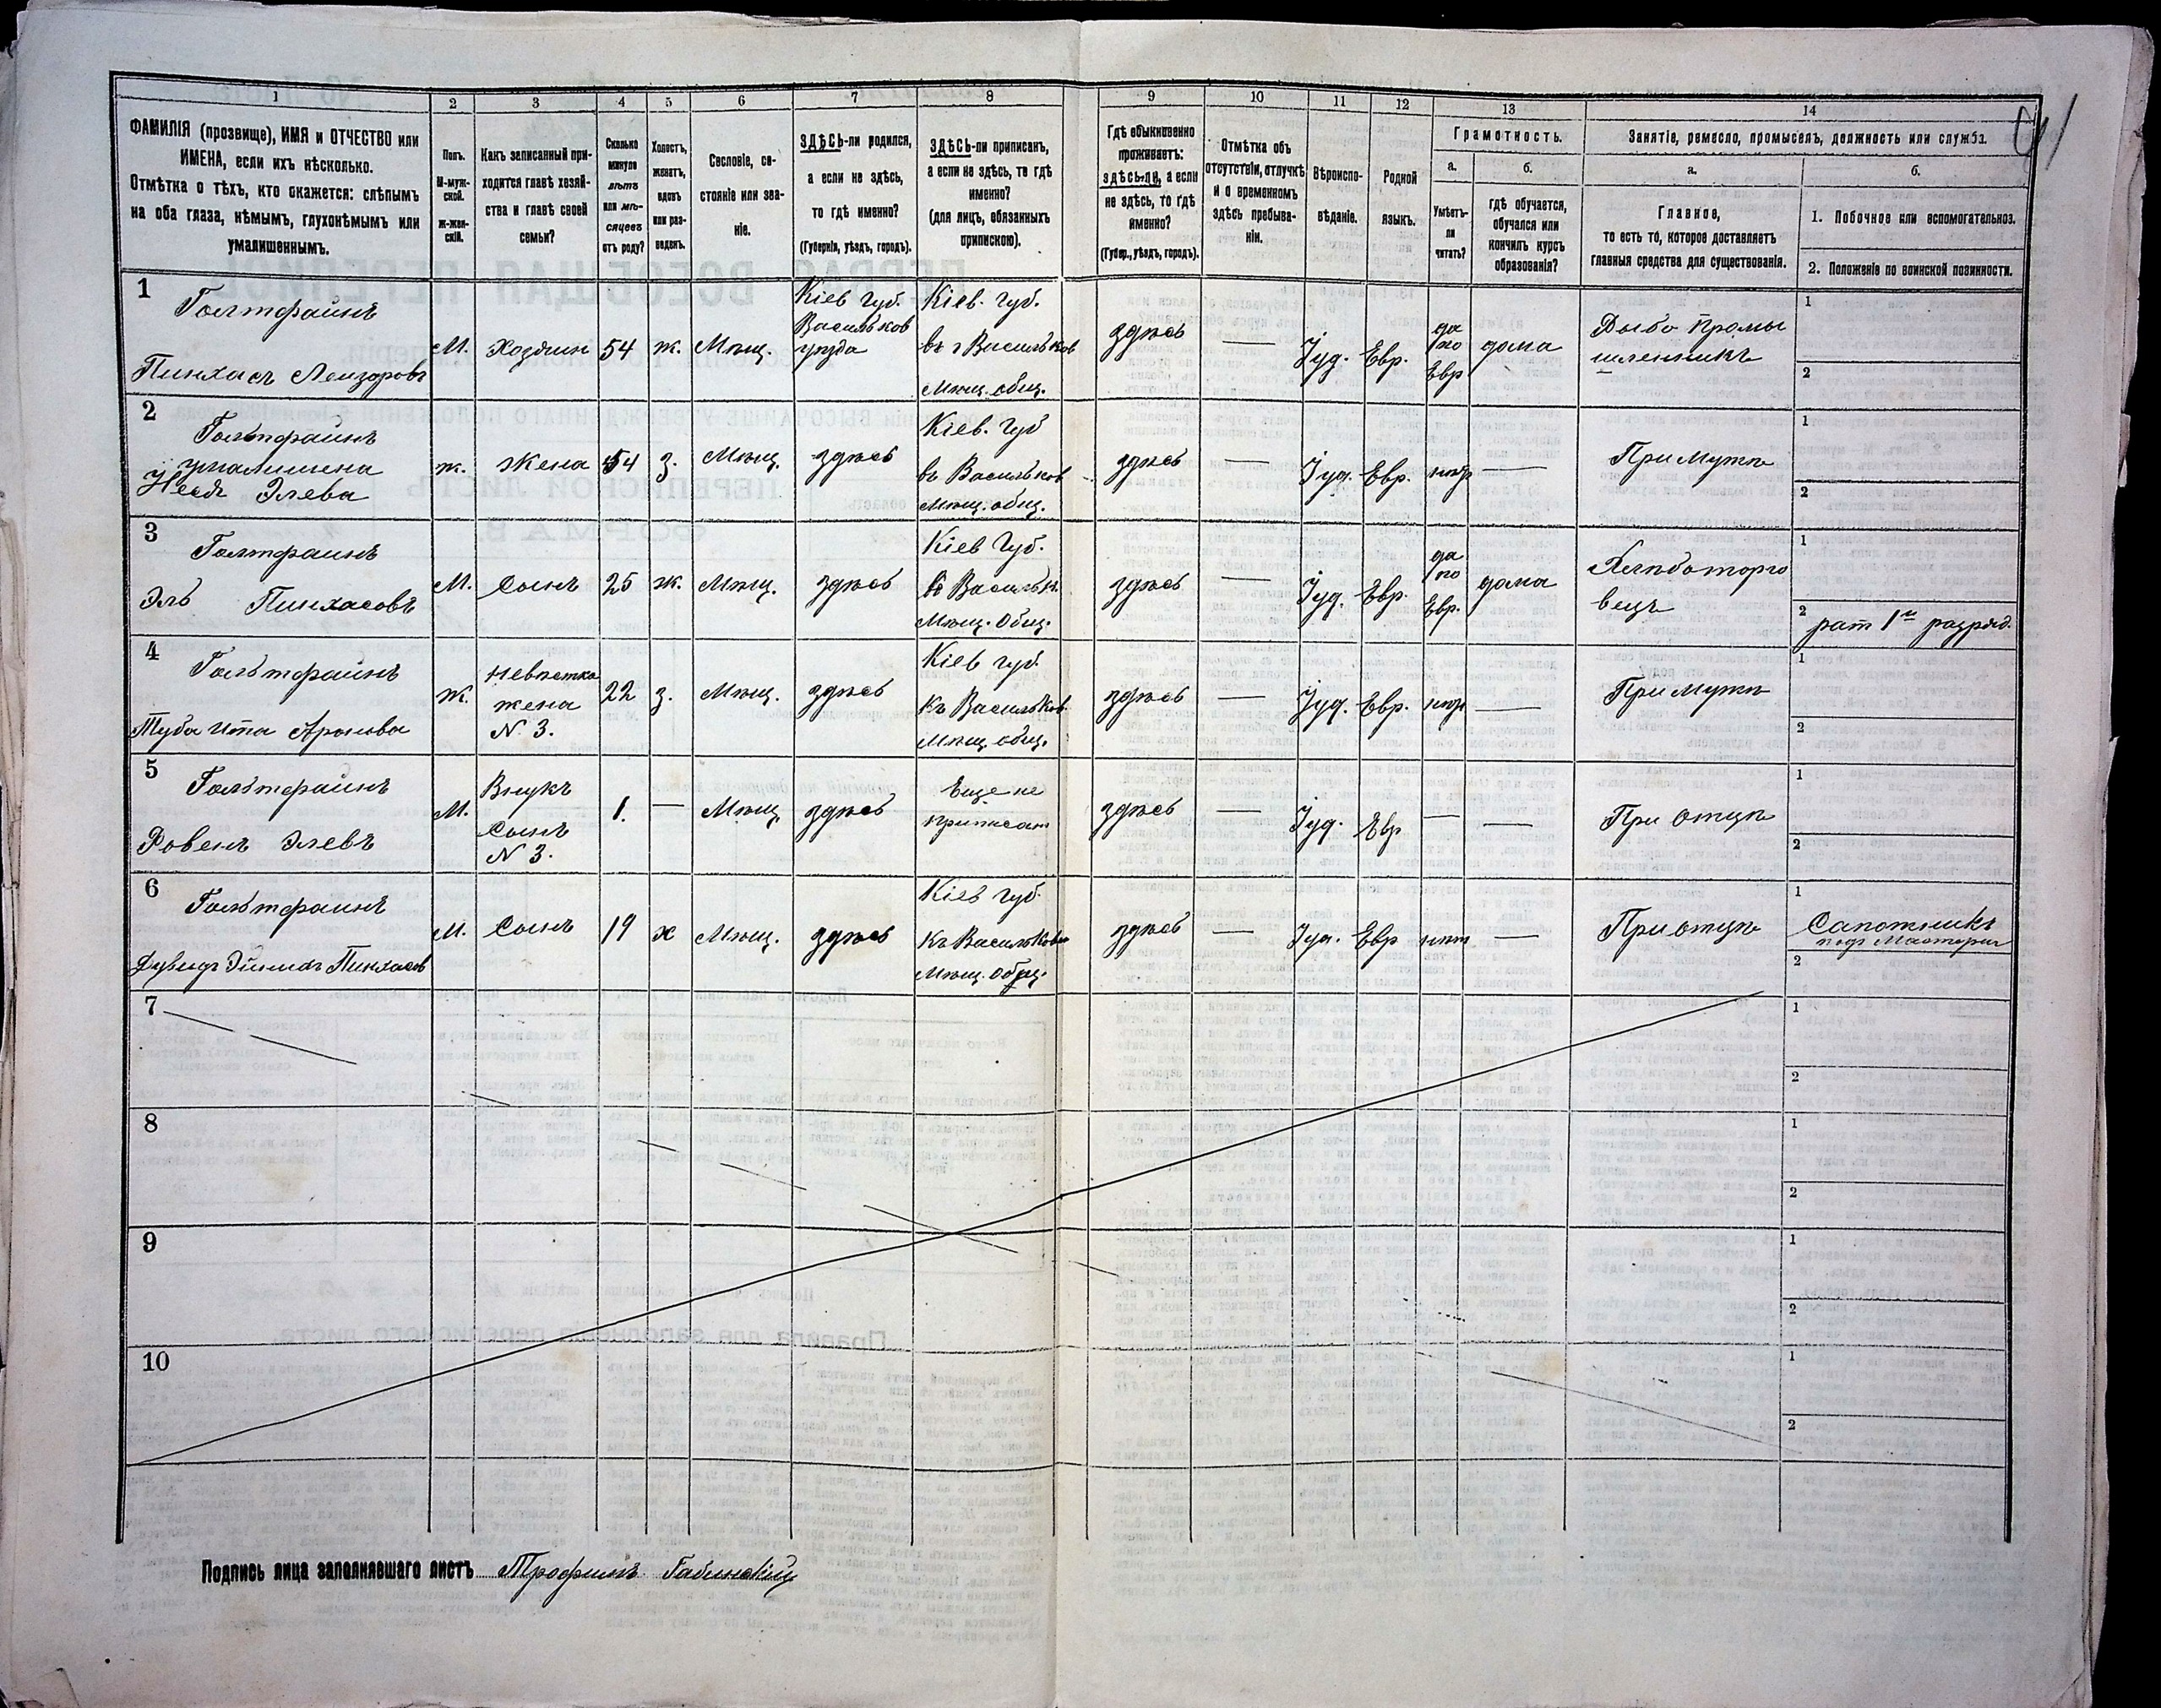 1 2 3 4 5 6 7 8 9 10 11 12 13 14
ФАМИЛІЯ (прозвище), ИМЯ и ОТЧЕСТВО или
ИМЕНА, если ихъ нѣсколько.
Отмѣтка о тѣхъ, кто окажется: слѣпымъ
на оба глаза, нѣмымъ, глухонѣмымъ или
умалишеннымъ.
Полъ.
М-муж-
ской.
Ж-жен-
скій.
Какъ записанный при-
ходится главѣ хозяй-
ства и главѣ своей
семьи?
Сколько
минуло
лѣтъ
или мѣ-
сяцевъ
отъ роду?
Холостъ,
женатъ,
вдовъ
или раз-
веденъ.
Сословіе, со-
стояніе или зва-
ніе.
ЗДѢСЬ-ли родился,
а если не здѣсь,
то гдѣ именно?
(Губернія, уѣздъ, городъ).
ЗДѢСЬ-ли приписанъ,
а если не здѣсь, то гдѣ
именно?
(для лицъ, обязанныхъ
припискою).
Гдѣ обыкновенно
проживаетъ:
здѣсь-ли, а если
не здѣсь, то гдѣ
именно?
(Губер., уѣздъ, городъ).
Отмѣтка объ
отсутствіи, отлучкѣ
и о временномъ
здѣсь пребыва-
ніи.
Вѣроиспо-
вѣданіе.
Родной
языкъ.
Грамотность.
а.
Умѣетъ-
ли
читать?
б.
гдѣ обучается,
обучался или
кончилъ курсъ
образованія?
Занятіе, ремесло, промыселъ, должность или служба.
а.
Главное,
то есть то, которое доставляетъ
главныя средства для существованія.
б.
1. Побочное или вспомогательное.
2. Положеніе по воинской повинности.
1
Голтфаинъ
Пинхасъ Лейзоровъ
М.
Хозяин
54
ж.
Мѣщ.
Кіев Губ.
Васильков
уѣзда
Кіев. Губ.
въ г Васильков
Мѣщ. общ.
здѣсь
—
Іуд.
Евр.
да
по
Евр
дома
Рыбо Промы
шленникъ
1
2
2
Гольтфаинъ
умалишена
Элева
ж.
Жена
54
з.
Мѣщ.
здѣсь
Кіев. Губ
въ Васильков
Мѣщ. общ.
здѣсь
—
Іуд.
Евр.
нѣт
—
При Мужѣ
1
2
3
Голтфаинъ
Эль Пинхасовъ
М.
Сынъ
25
ж.
Мѣщ.
здѣсь
Кіев Губ.
в Васильк.
Мѣщ. Общ.
здѣсь
—
Іуд.
Евр.
да
по
Евр.
дома
Хлѣботорго
вецъ
1
2 рат 1го разряд.
4
Гольтфаинъ
Туба Ита Аронова
ж.
Невѣстка
жена
N 3.
22
з.
Мѣщ.
здѣсь
Кіев губ.
къ Васильков.
Мѣщ. общ.
здѣсь
—
Іуд.
Евр.
нѣт
—
При Мужѣ
1
2
5
Гольтфаинъ
Ровенъ Элевъ
М.
Внукъ
Сынъ
N 3.
1.
—
Мѣщ
здѣсь
Еще не
приписан
здѣсь
—
Іуд.
Евр
—
—
При отцѣ
1
2
6
Гольтфаинъ
Пинхасов
М.
Сынъ
19
х
Мѣщ.
здѣсь
Кіев Губ.
Къ Васильков
Мѣщ. Общ.
здѣсь
—
Іуд.
Евр
нѣт
—
При отцѣ
1 Сапожникъ
подъ Мастерья
2
7
1
2
8
1
2
9
1
2
10
1
2
Подпись лица заполнявшаго листъ Трофимъ Габинскій